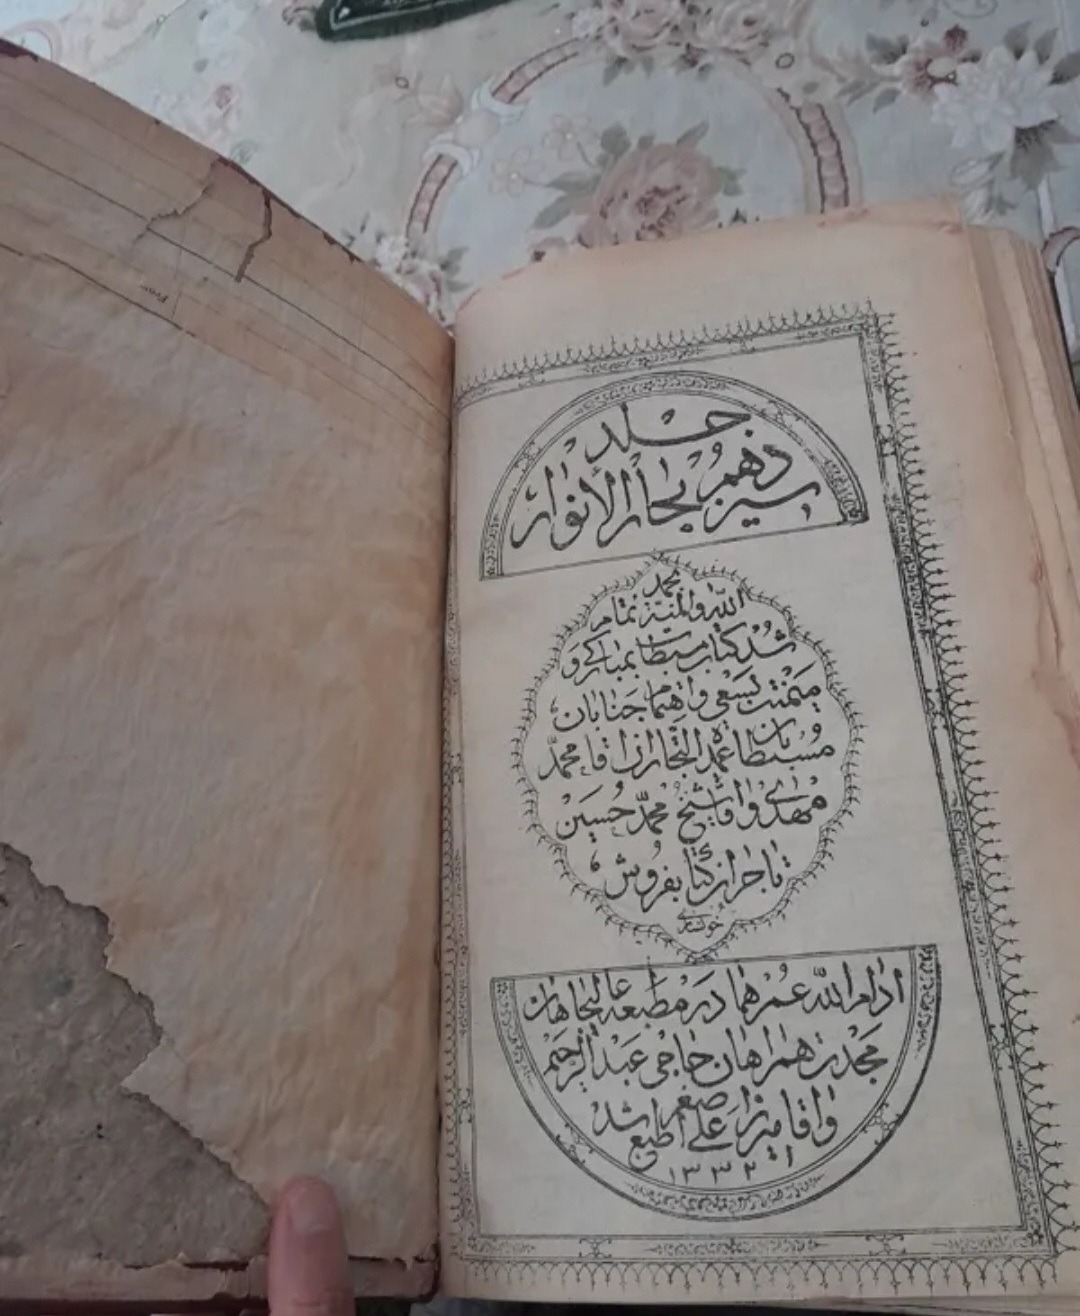 جلد
سیزدهم بحار الأنوار
بحمد
الله والمنه تمام
شد کتاب مستطاب مبارک و
میمنت بسعی و اهتمام جنابان
مستطابان عمدة التجار ان اقا محمد
مهدی و اقا شیخ محمد حسین
تاجران کتابفروش
خونساری
ادام الله عمرهما در مطبعه عالیجاهان
مجدت همراهان حاجی عبد الرحیم
و اقا میرزا علی اصغر
طبع شد
۱۳۳۲